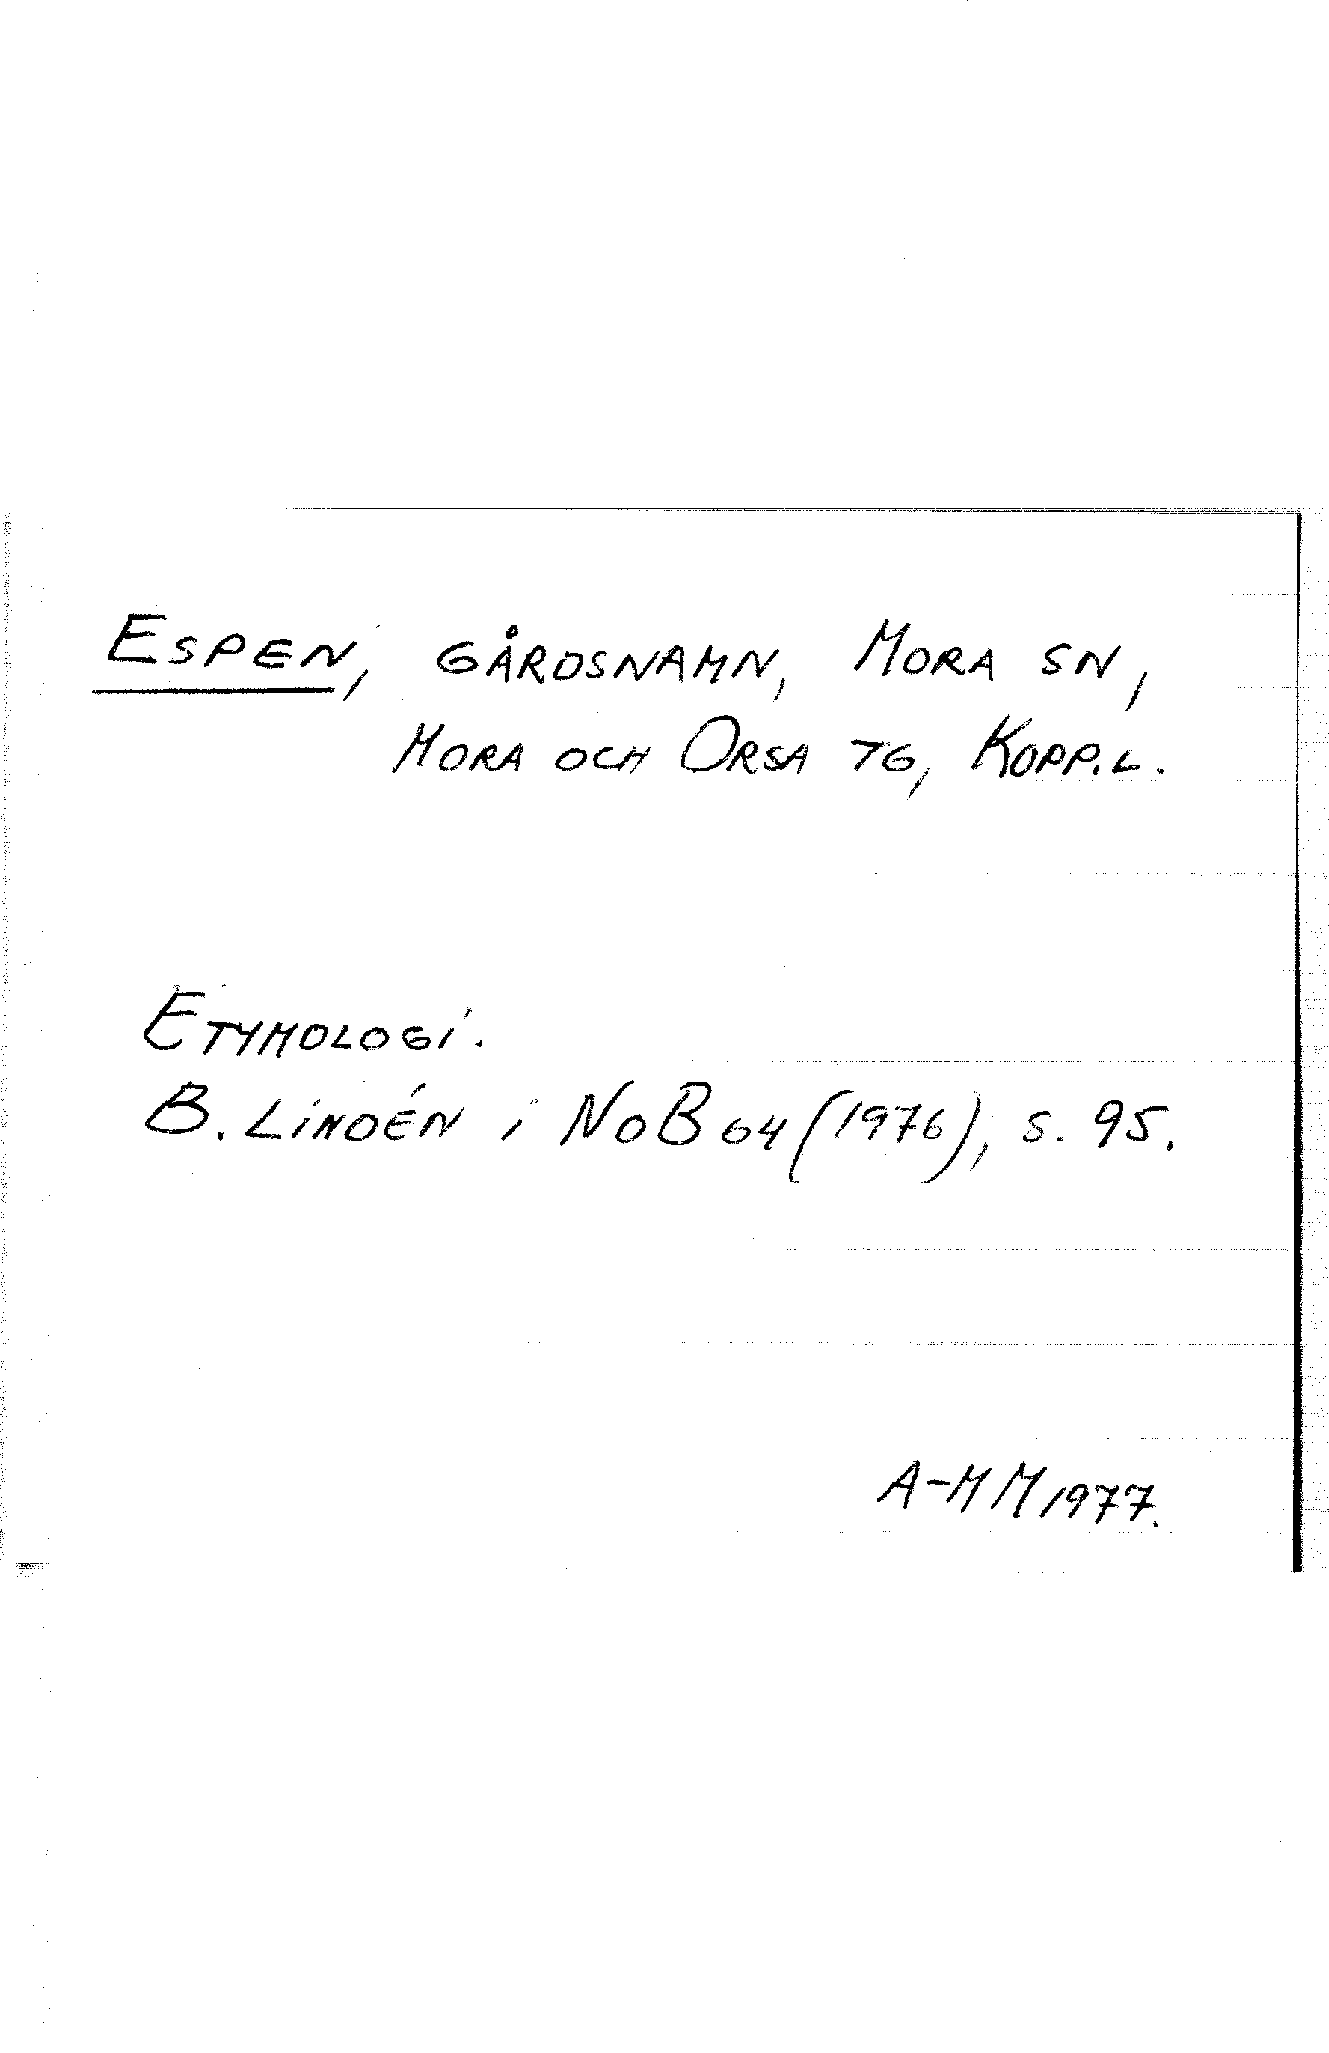 Espen, gårdsnamn, Mora sn,
Mora och Orsa tg, Kopp.l.
Etymologi.
B. Lindén i NoB 64 (1976), s. 95.
A-MM 1977.